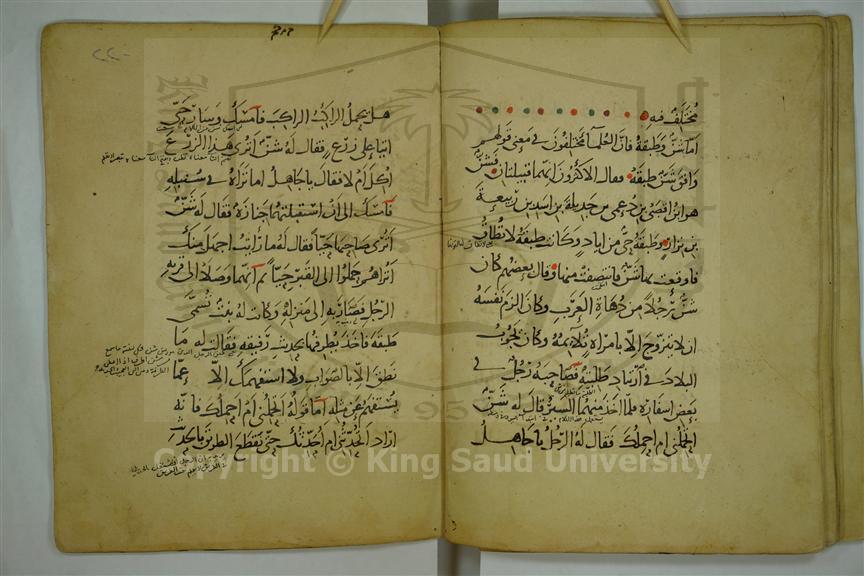 مختلف فيه
اما شن وطبقة فان العلما مختلفون في معنى قولهم
وافق شن طبقة فقال الاكثرون انهما قبيلتان فشن
هو ابن اقصى بن دعمي بن جديلة بن اسد بن ربيعة
بن نزار وطبقة حي من اياد وكانت طبقة لا تطاق
فاوقعت بها شن فانتصفت منها وقال بعضهم كان
شن رجلا من دهاة العرب وكان الزم نفسه
ان لا يتزوج الا بامراة تلائمه وكان يجوب
البلاد في ارتياد طلبته فصاحبه رجل في
بعض اسفاره فلما اخذ منهما السير قال له شن
اتحملني ام احملك فقال له الرجل يا جاهل
هل يحمل الراكب الراكب فامسك وسارا حتى
اتيا على زرع فقال له شن اترى هذا الزرع
اكل ام لا فقال يا جاهل اما تراه في سنبله
فامسك الى ان استقبلتهما جنازة فقال له شن
اترى صاحبها حيا فقال له ما رايت اجهل منك
اتراهم حملوا الى القبر حيا ثم انهما وصلا الى قرية
الرجل فصار به الى منزله وكانت له بنت تسمى
طبقة فاخذ يطرفها بحديث رفيقه فقالت له ما
نطق الا بالصواب ولا استفهمك الا عما
يستفهم عن مثله اما قوله اتحملني ام احملك فانه
اراد اتحدثني ام احدثك حتى نقطع الطريق بالحديث